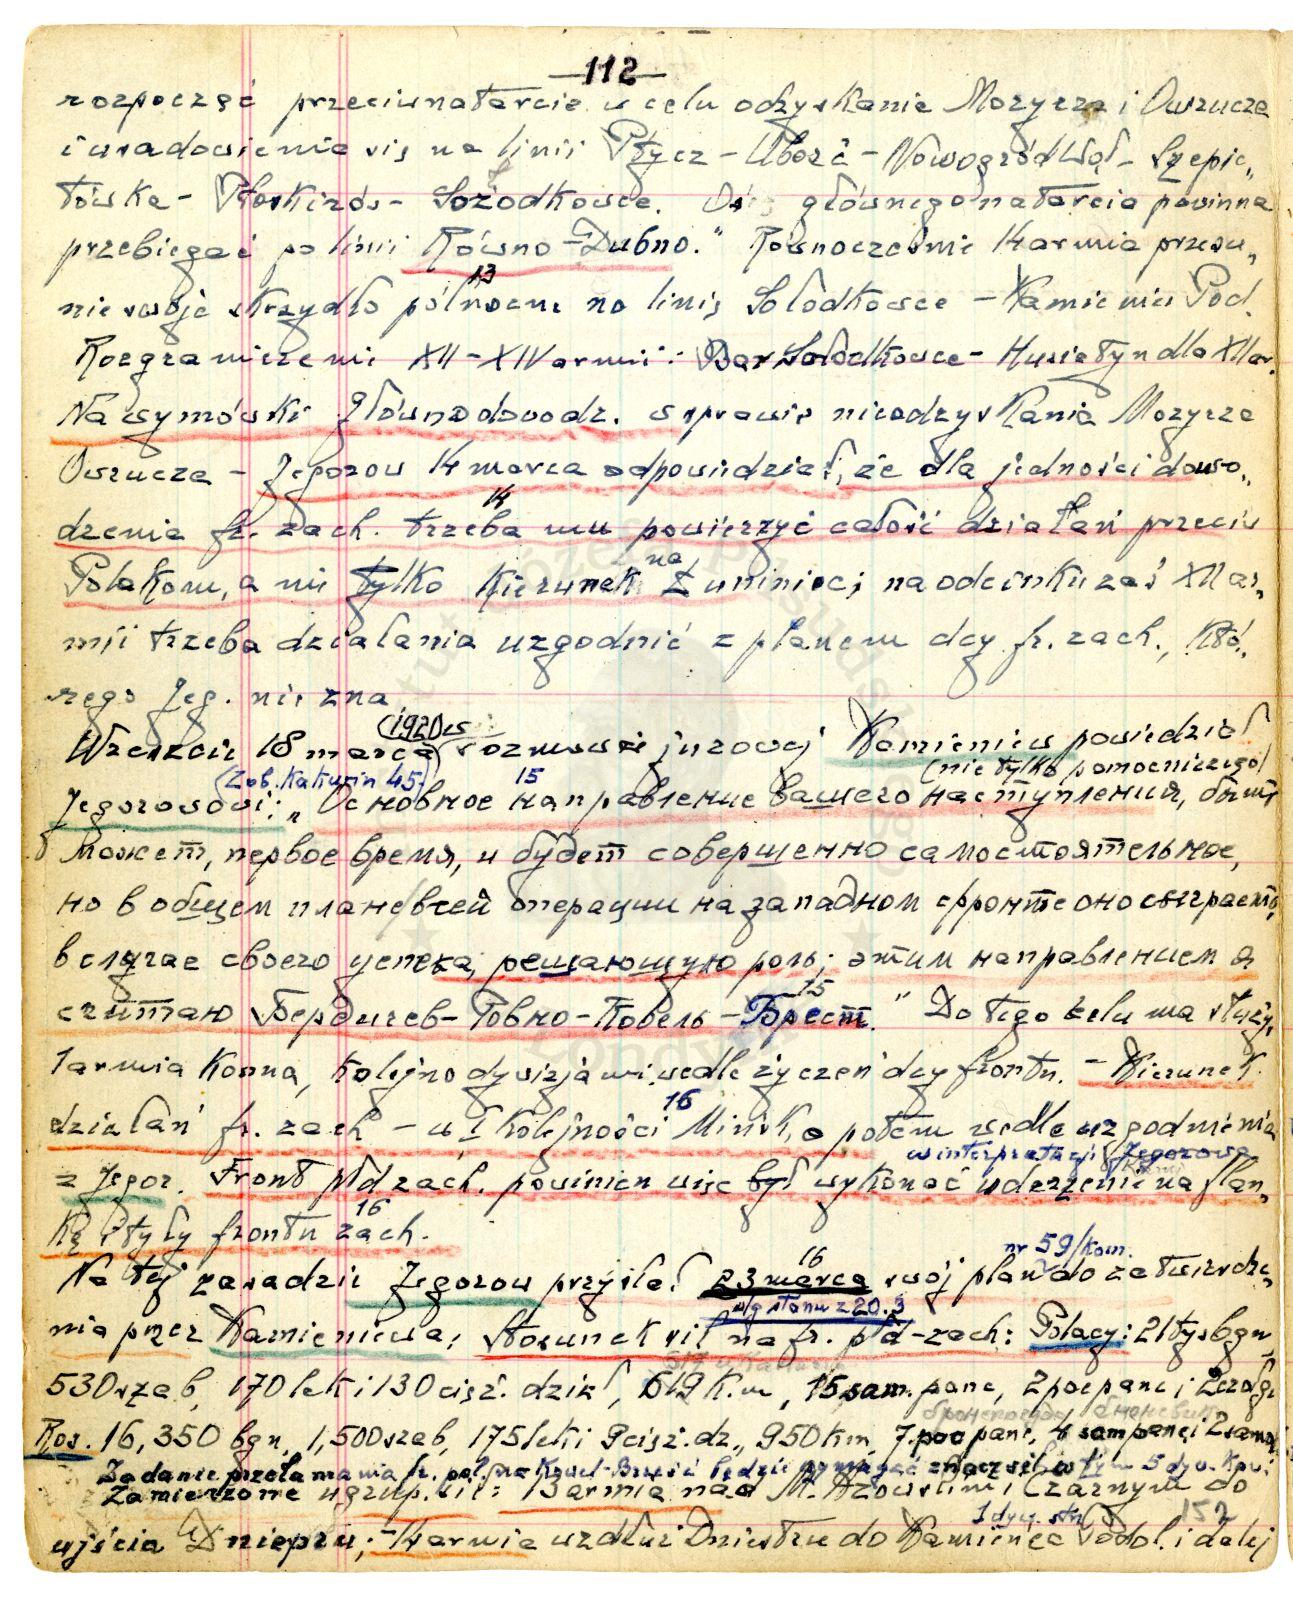 —112—
rozpocząć przeciwnatarcie w celu odzyskania Mozyrza i Owrucza
i usadowienia się na linii Ptycz – Uborć – Nowogród Woł – Szepie„
tówka – Płoskirów – Sołodkowce. Oś głównego natarcia powinna
przebiegać po linii Równo – Dubno.“ Równocześnie 14 armia przesu„
13
nie swoje skrzydło północne na linię Sołodkowce – Kamieniec Pod.
Rozgraniczenie XII – XIV armii: Bar Sołodkowce – Husiatyn dla XII ar.
Na wymówki głównodowodz. w sprawie nieodzyskania Mozyrza
Owrucza – Jegorow 14 marca odpowiedział, że dla jedności dowo„
14
dzenia fr. zach. trzeba mu powierzyć całość działań przeciw
Polakom, a nie tylko kierunek na Łuniniec; na odcinku zaś XII ar„
mii trzeba działania uzgodnić z planem dcy fr. zach., któ„
rego Jeg. nie zna
Wreszcie 18 marca (1920) w rozmowie juzowej Kamieniew powiedział
(Zob. Kakurin 45) 15 (nie tylko pomocniczego)
Jegorowowi: „Основное направление вашего наступления, быть
может, первое время, и будет совершенно самостоятельное,
но в общем плане всей операции на западном фронте оно сыграет,
в случае своего успеха, решающую роль; этим направлением я
15
считаю Бердичев – Ровно – Ковель – Брест.“ Do tego celu ma służyć
1 armia Konna, kolejno dywizjami, wedle życzeń dcy frontu. – Kierunek
16
działań fr. zach – w I kolejności Mińsk, a potem wedle uzgodnienia
w interpretacji Jegorowa
z Jegor. Front płd zach. powinien więc był wykonać uderzenie na flan„
16
kę i tyły frontu zach.
16 nr 59/kom.
Na tej zasadzie Jegorow przysłał 23 marca swój plan do zatwierdze„
wg stanu z 20.3
nia przez Kamieniewa; Stosunek sił na fr. płd-zach: Polacy: 21 tys bgn,
530 szab, 170 lek i 130 cięż. dział, 619 k.m, 15 sam. panc, 2 poc panc i
Ros. 16,350 bgn, 1,500 szab, 175 lek i 9 cięż. dz., 950 km, 7 poc panc,
Zadanie przełamania fr. pol. na Kowel – Brześć będzie
Zamierzone ugrup. sił: 13 armia nad M. Azowskim i Czarnym do
1 dyw. str 152
ujścia Dniepru; – 14 armia wzdłuż Dniestru do Kamieńca Podol. i dalej